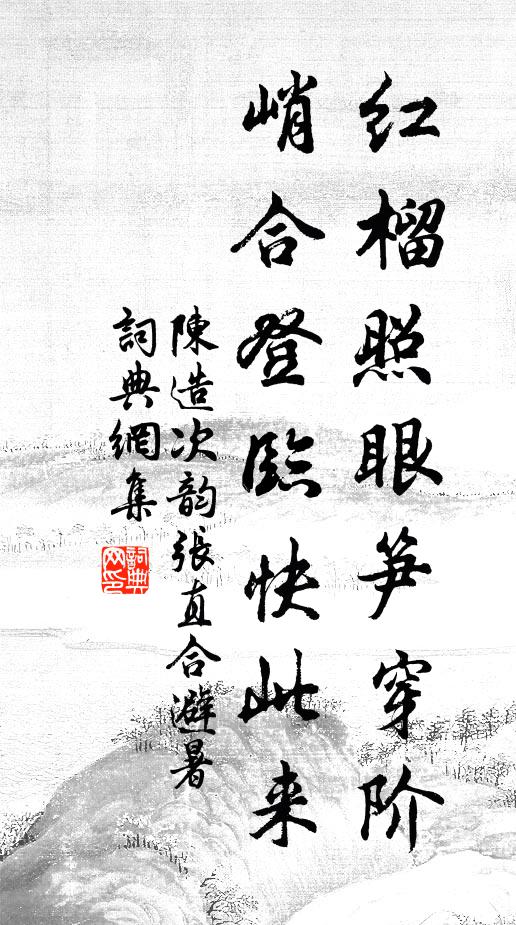 红榴照眼笋穿阶
峭合登臨快此来
陳造次韵張直合避暑
詞典網集
詞典网印